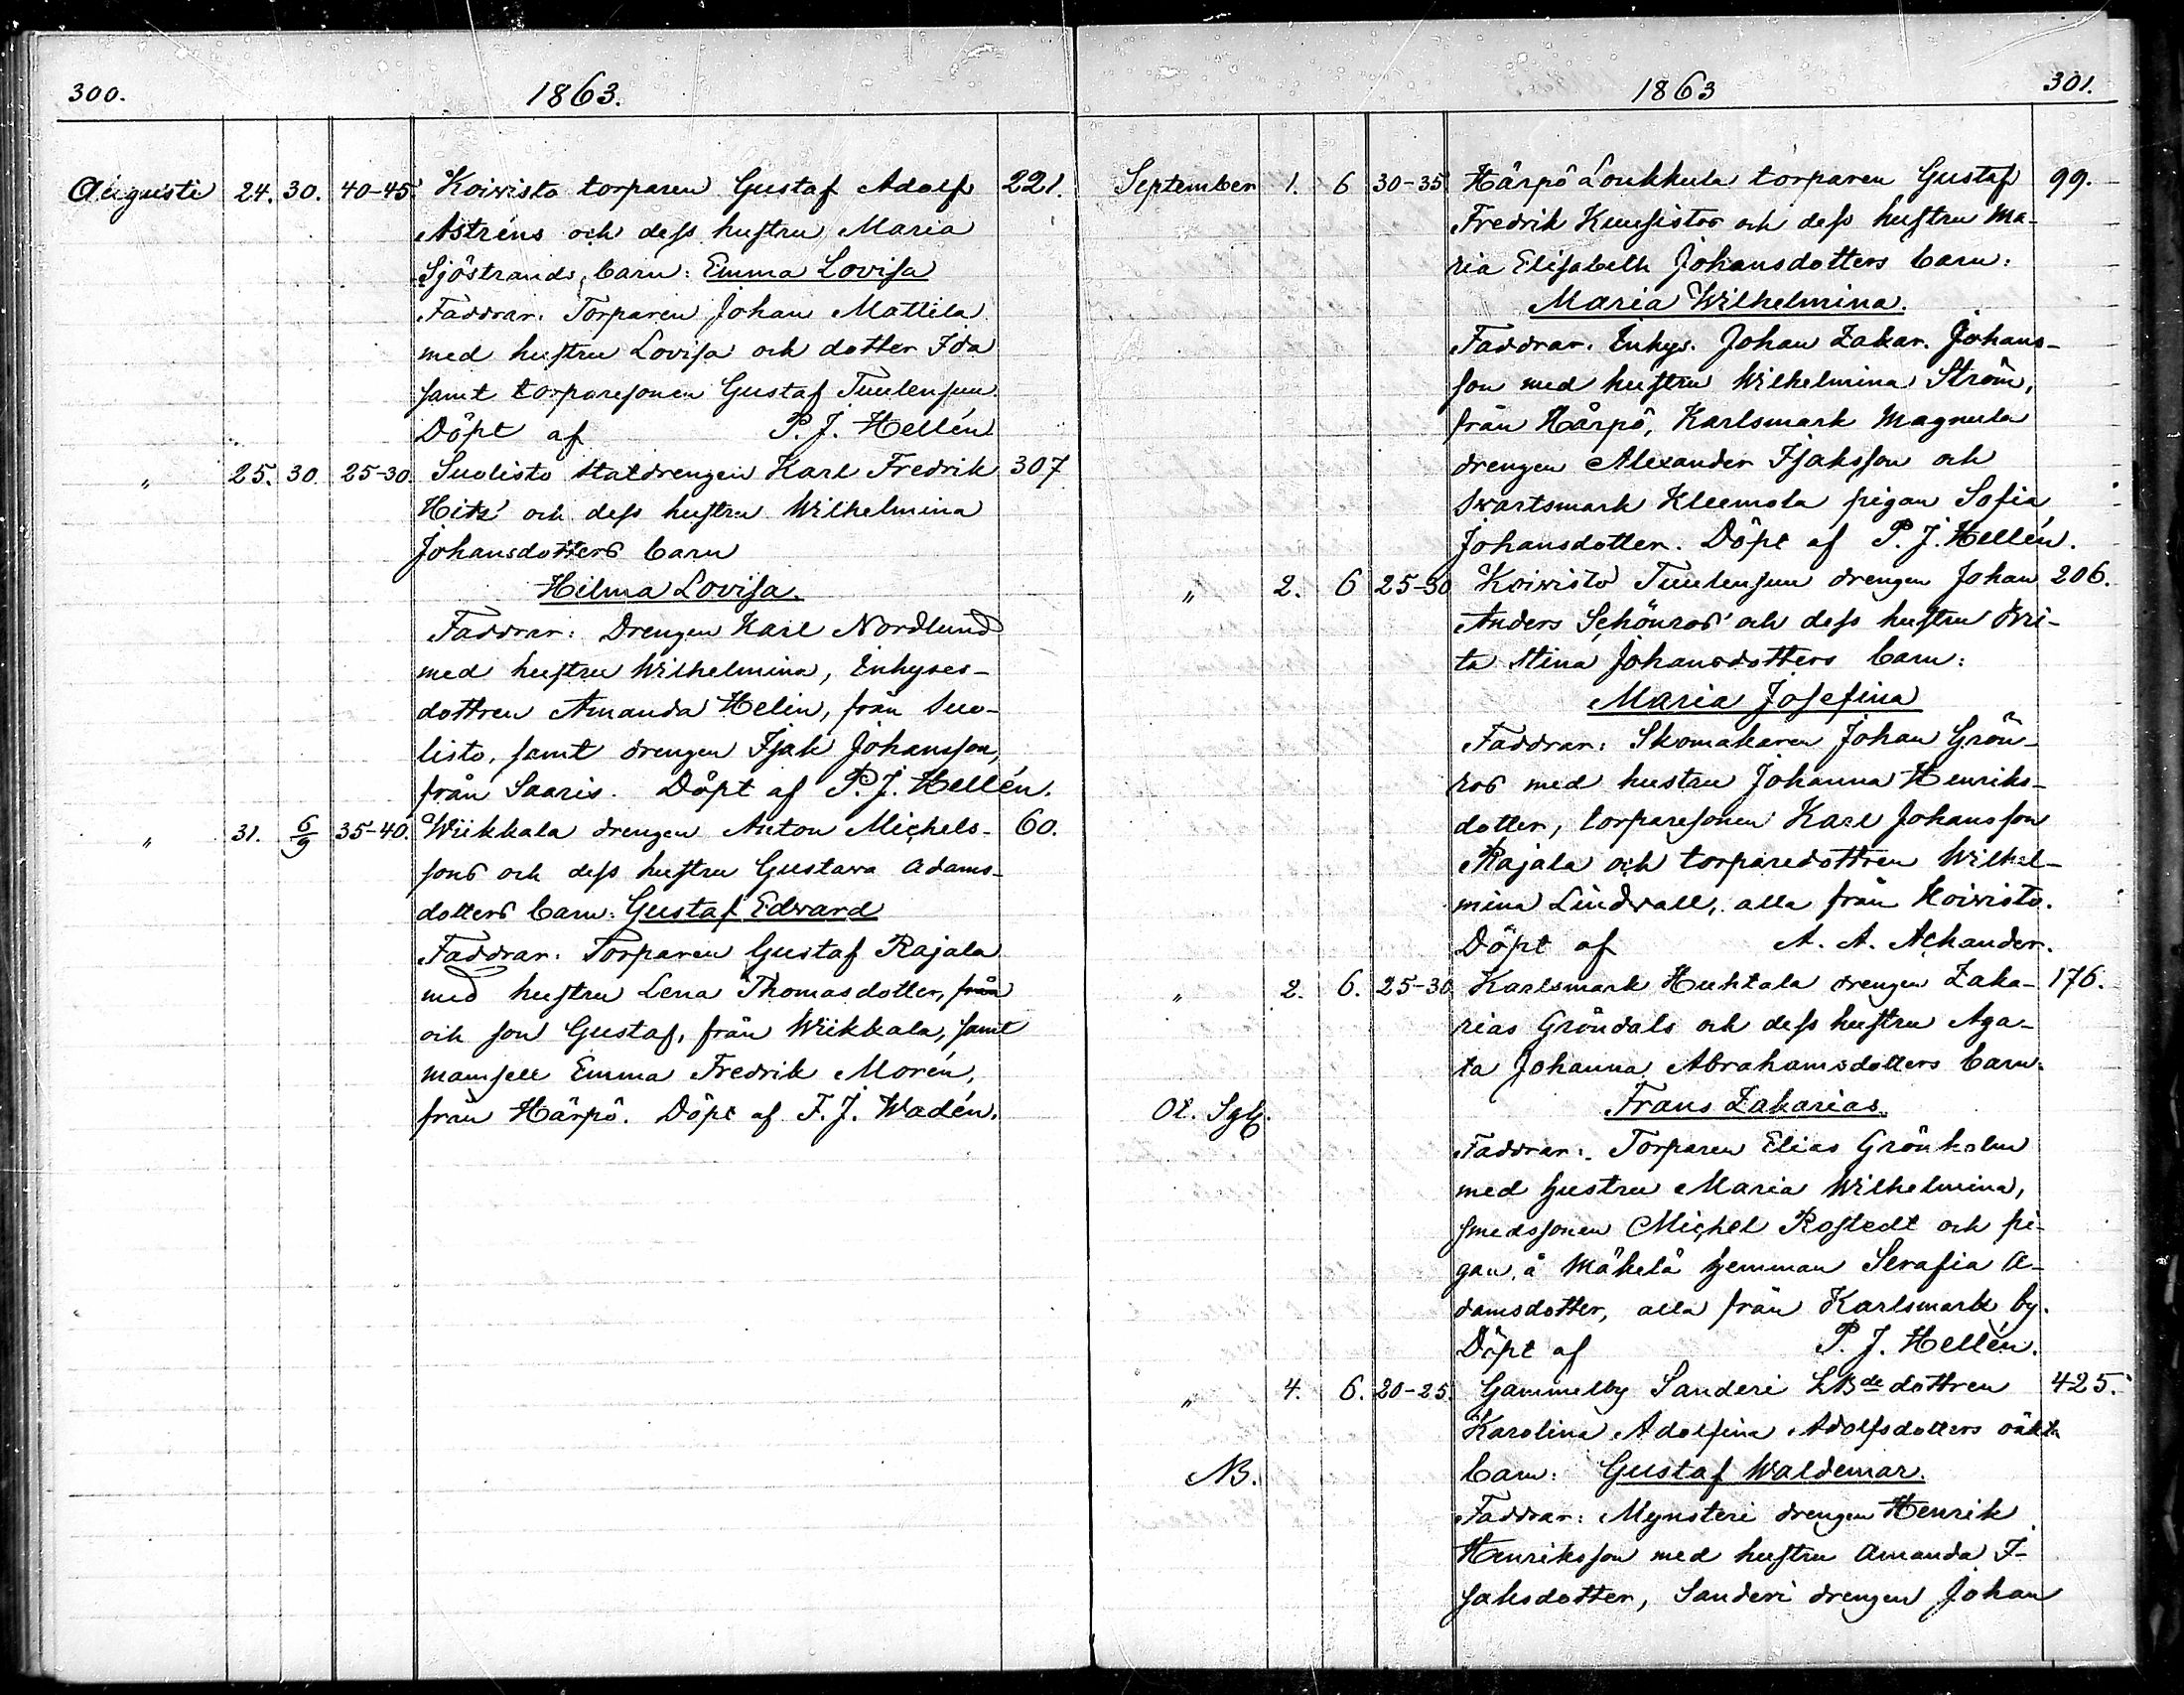 300.
1863.
Augusti 24. 30. 40-45. Koivisto torparen Gustaf Adolf 221.
Astréns och dess hustru Maria
Sjöstrands barn: Emma Lovisa
Faddrar: Torparen Johan Mattila
med hustru Lovisa och dotter Ida
samt torparesonen Gustaf Tuulensuu.
Döpt af P. J. Hellén
" 25. 30. 25-30. Suolisto statdrengen Karl Fredrik 307
Hitz' och dess hustru Wilhelmina
Johansdotters barn
Hilma Lovisa.
Faddrar: Drengen Karl Nordlund
med hustru Wilhelmina, Inhyses-
dottren Amanda Helin, från Suo-
listo, samt drengen Isak Johansson,
från Saaris. Döpt af P. J. Hellén.
" 31. 6/9 35-40. Wiikkala drengen Anton Michels- 60.
sons och dess hustru Gustava Adams-
dotters barn: Gustaf Edvard
Faddrar: Torparen Gustaf Rajala
med hustru Lena Thomasdotter, från
och son Gustaf, från Wiikkala, samt
mamsell Emma Fredrik Morén,
från Härpö. Döpt af F. J. Wadén.
1863
301.
September 1. 6 30-35 Härpö Loukkula torparen Gustaf 99.
Fredrik Kuusistos och dess hustru Ma-
ria Elisabeth Johansdotters barn:
Maria Wilhelmina.
Faddrar: Inhys. Johan Zakar. Johans-
son med hustru Wilhelmina Ström,
från Härpö, Karlsmark Magnula
drengen Alexander Isaksson och
Svartsmark Kleemola pigan Sofia
Johansdotter. Döpt af P. J. Hellén.
" 2. 6 25-30 Koivisto Tuulensuu drengen Johan 206.
Anders Schönros' och dess hustru Bri-
ta Stina Johansdotters barn:
Maria Josefina
Faddrar: Skomakaren Johan Grön-
ros med hustru Johanna Henriks-
dotter, torparesonen Karl Johansson
Rajala och torparedottren Wilhel-
mina Lindvall, alla från Koivisto.
Döpt af A. A. Achander.
" 2. 6. 25-30 Karlsmark Huhtala drengen Zaka- 176.
rias Gröndals och dess hustru Aga-
ta Johanna Abrahamsdotters barn:
Ol. Sgb. Frans Zakarias
Faddrar: Torparen Elias Grönholm
med hustru Maria Wilhelmina,
smedssonen Michel Rostedt och pi-
gan å Mäkelä hemman Serafia A-
damsdotter, alla från Karlsmark by.
Döpt af P. J. Hellén.
" 4. 6. 20-25 Gammelby Sanderi LBde dottren 425.
Karolina Adolfina Adolfsdotters oäkta
NB. barn: Gustaf Waldemar.
Faddrar: Mynsteri drengen Henrik
Henriksson med hustru Amanda I-
saksdotter, Sanderi drengen Johan